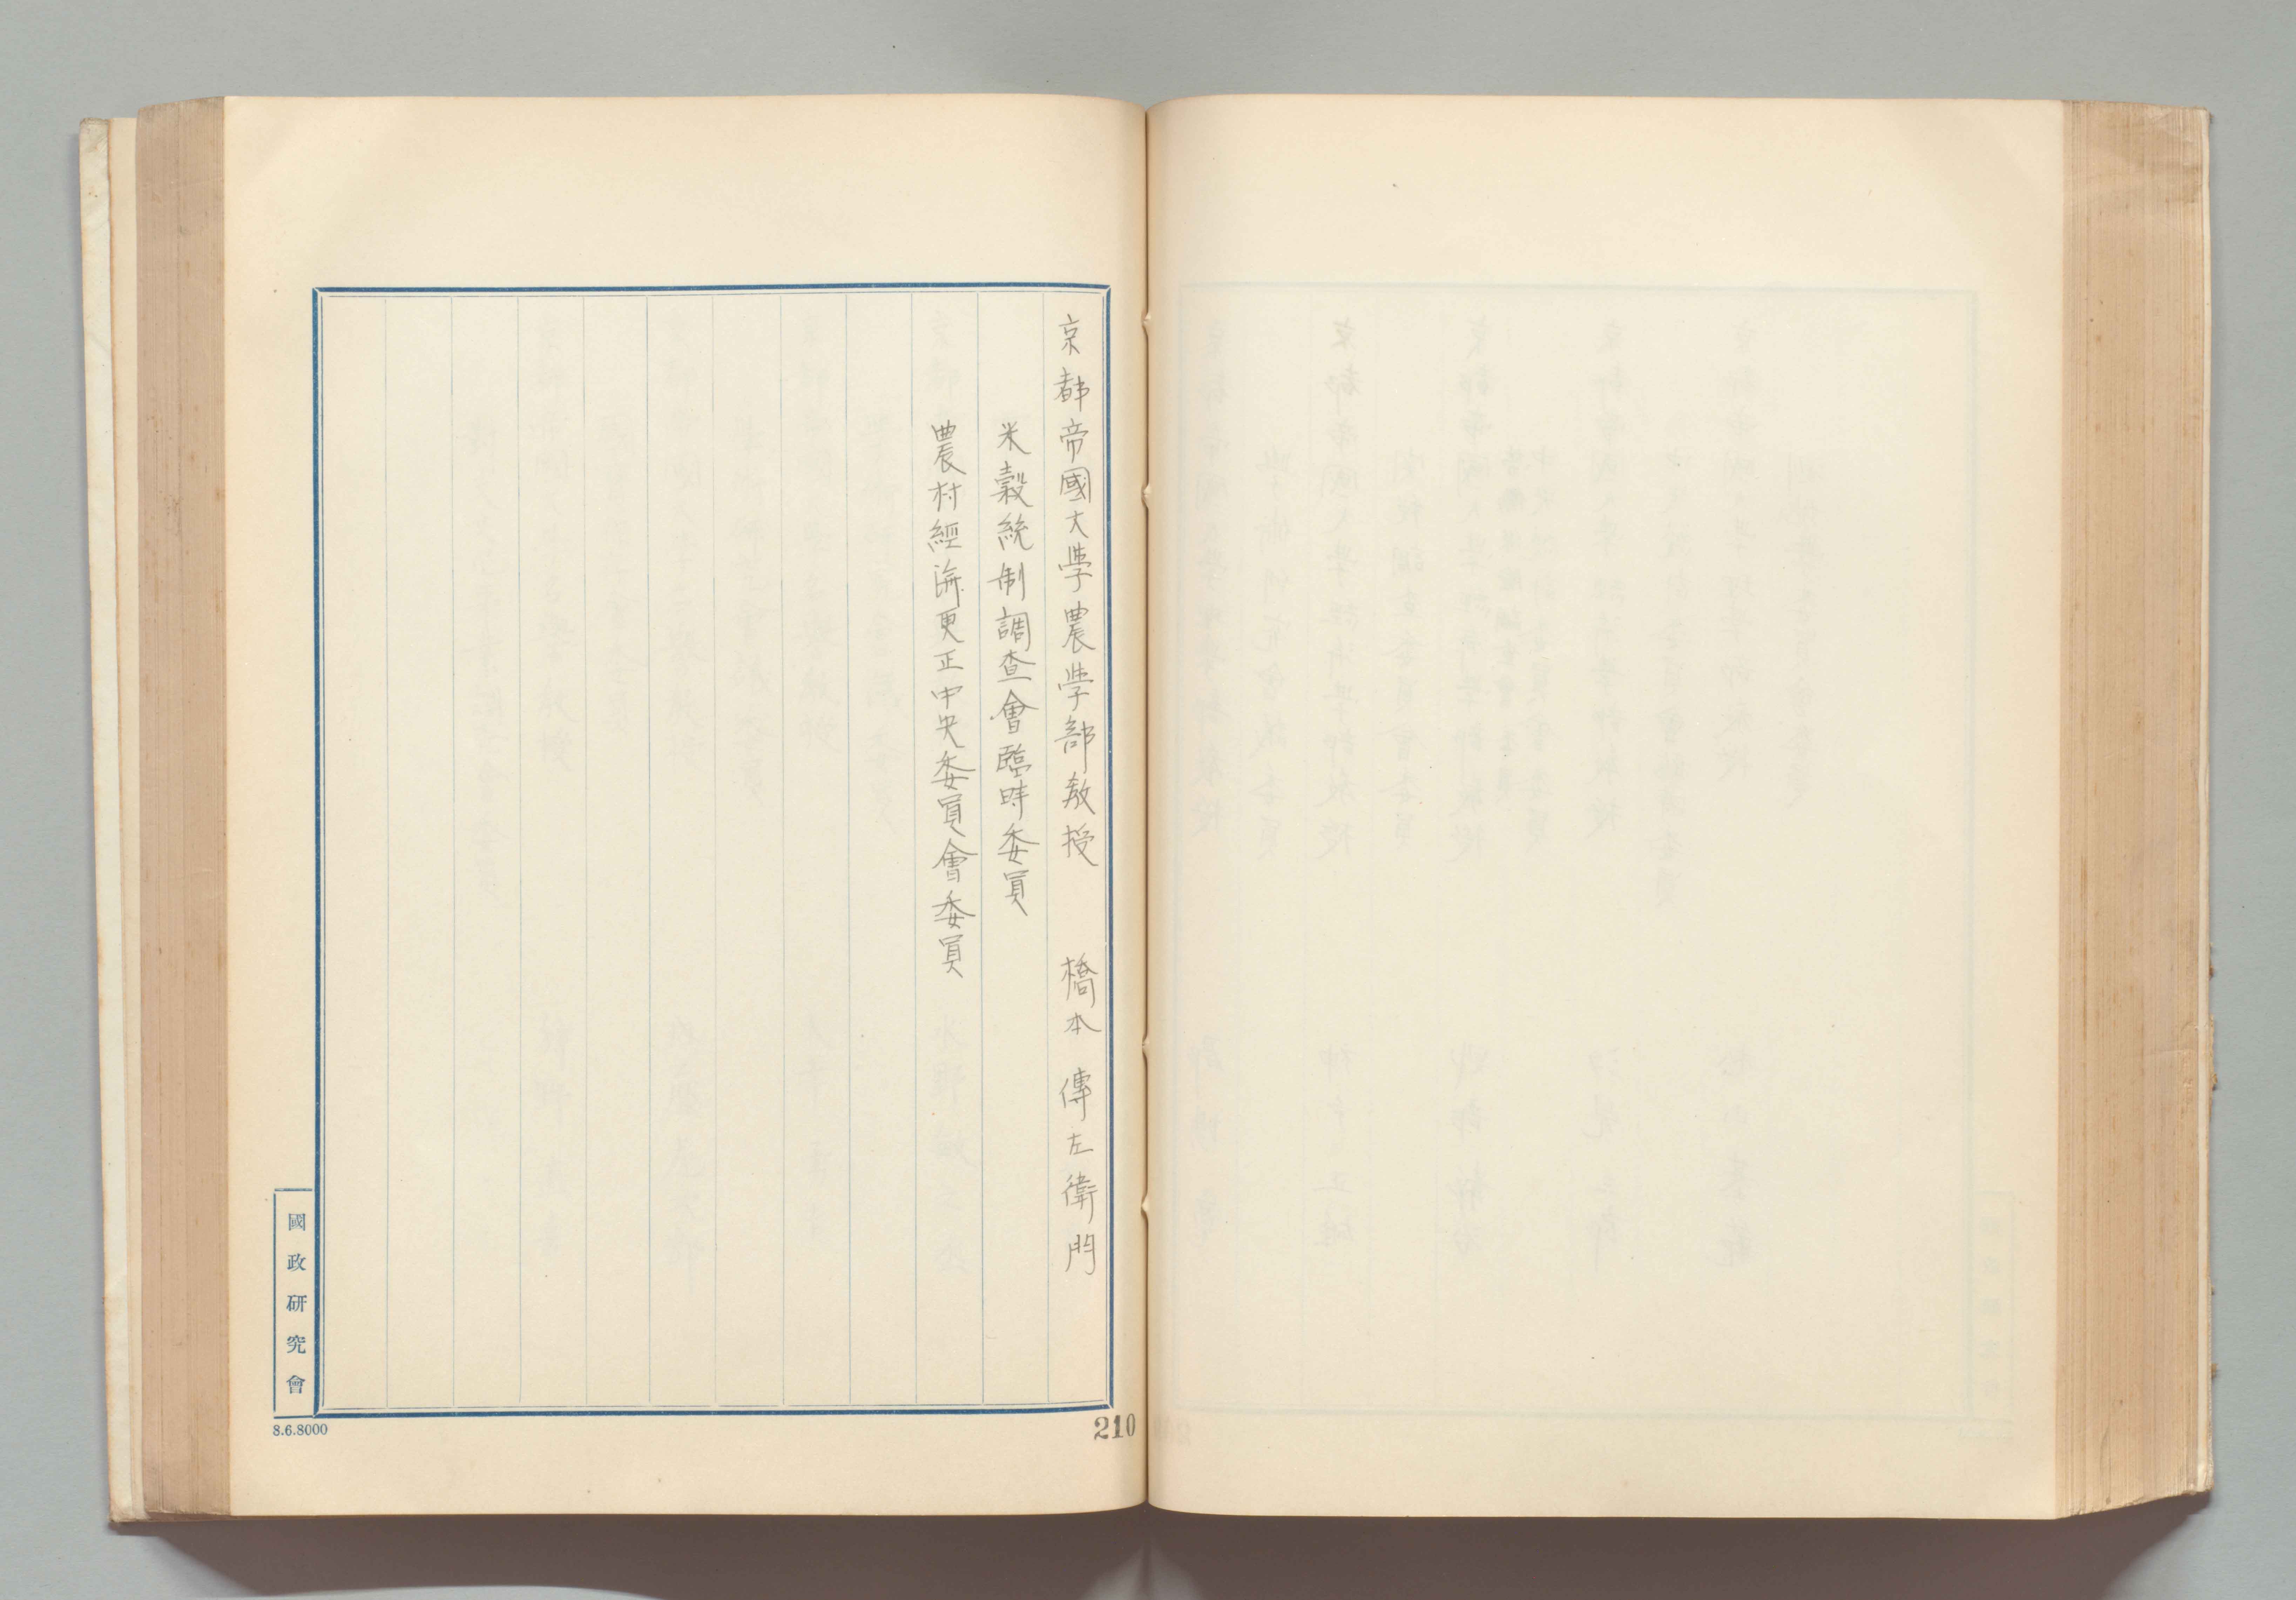 京都帝國大學農学部教授 橋本傳左衛門
米穀統制調査會臨時委員
農村經済更正中央委員會委員
國政研究會
8.6.8000
210